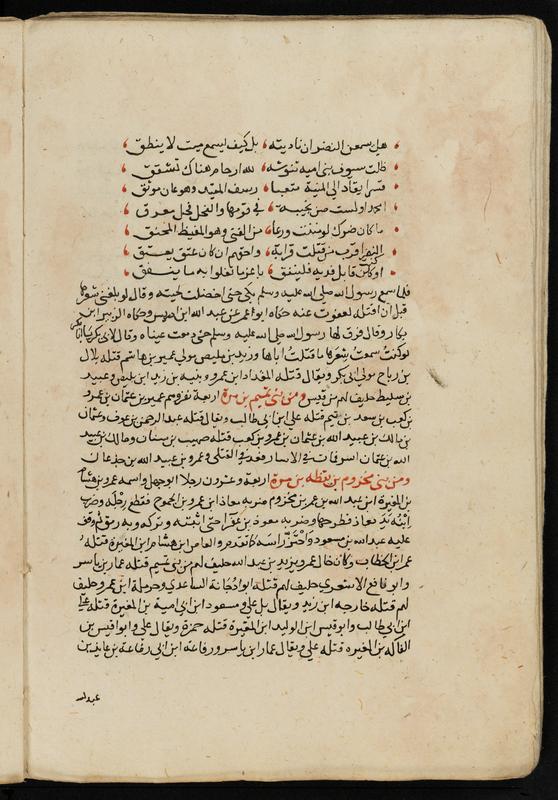 هل يسمعن النضر ان ناديته بل كيف اسمع ميت لا ينطق
ظلت سيوف بنى اميه تنوشه لله ارحام هناك تشقق
قسرا يقاد الى المنية متعبا رسف المقيد وهو عان موثق
امحمد اولست ضن نجيبة فى قومها والفحل فحل معرق
ما كان ضرك لو مننت وربما من الفتى وهو المغيظ المحنق
النضر اقرب من قتلت قرابة واحقهم ان كان عتق يعتق
او كنت قابل فديه فلينفق باعز ما تغلوا به ما ينفق
فلما سمع رسول الله صلى الله عليه وسلم بكى حتى اخضلت لحيته وقال لو بلغنى شعرها
قبل ان اقتله لعفوت عنه حكاه ابو عمر عن عبد الله ابن ادريس وحكاه الزبير ابن
بكار وقال فرق لها رسول الله صلى الله عليه وسلم حتى دمعت عيناه وقال لابى بكر يا ابا بكر
لو كنت سمعت شعرها ما قتلت اباها وزيد بن مليص مولى عمير بن هاشم قتله بلال
بن رباح مولى ابى بكر ويقال قتله المقداد ابن عمرو ونبيه بن زيد ابن مليص وعبيد
بن سليط حليف لهم من قيس ومن بنى تميم بن مرة اربعة نفر وهم عمير بن عثمان بن عمرو
بن كعب بن سعد بن تيم قتله على ابن ابى طالب ويقال قتله عبد الرحمن بن عوف وعثمان
بن مالك بن عبيد الله بن عثمان بن عمرو بن كعب قتله صهيب بن سنان ومالك بن عبيد
الله بن عثمان اسر فمات فى الاسار فعد فى القتلى وعمرو بن عبيد الله بن جدعان
ومن بنى مخزوم بن يقظه بن مرة اربعة وعشرون رجلا ابو جهل واسمه عمرو بن هشام
بن المغيرة ابن عبد الله بن عمر بن مخزوم ضربه معاذ ابن عمرو بن الجموح فقطع رجله وضرب
ابنه يد معاذ فطرحها وضربه معوذ بن عفرا حتى اثبته وتركه وبه رمق ثم وقف
عليه عبد الله بن مسعود واحتز راسه كما تقدم والعاص ابن هشام ابن المغيرة قتله
عمر ابن الخطاب وكان خاله عمرو ويزيد بن عبد الله حليف لهم من بنى تميم قتله عمار بن ياسر
وابو قافع الاشعرى حليف لهم قتله ابو دجانة الساعدى وحرملة ابن عمرو حليف
لهم قتله خارجه ابن زيد ويقال بل على ومسعود ابن ابى امية بن المغيرة قتله على
ابن ابى طالب وابو قيس ابن الوليد ابن المغيرة قتله حمزة ويقال على وابو قيس بن
الفاكه بن المغيره قتله على ويقال عمار ابن ياسر ورفاعة ابن ابى رفاعة بن عابد بن
عبد الله